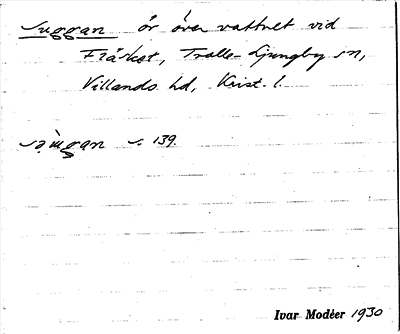 Suggan är över vattnet vid
Fräsket, Trolle-Ljungby sn,
Villands hd, Krist. l.
s. 139.
Ivar Modéer 1930